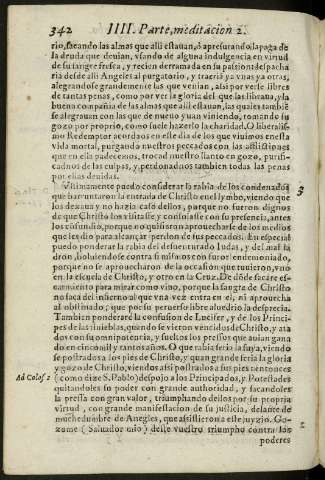 342 IIII. Parte, meditacion 2.
rio, sacando las almas que alli estauan, ó apresurando la paga de
la deuda que deuian, vsando de alguna indulgencia en virtud
de su sangre fresca, y recien derramada en su passion: despacha
ria desde alli Angeles al purgatorio, y traeriá ya vnas ya otras,
alegrandose grandemente las que venian, assi por verse libres
de tantas penas, como por ver la gloria del que las libraua, y la
buena compañia de las almas que alli estauan, las quales tambiẽ
se alegrauan con las que de nueuo yuan viniendo, tomando su
gozo por proprio, como suele hazerlo la charidad. O liberalis-
mo Redemptor acordaos este dia de los que viuimos en esta
vida mortal, purgando nuestros peccados con las afflictiones
que en ella padecemos, trocad nuestro llanto en gozo, purifi-
cadnos de las culpas, y perdonadnos tambien todas las penas
por ellas deuidas.
Vltimamente puedo considerar la rabia de los condenados 3
que barruntaron la entrada de Christo en el lymbo, viendo que
los dexaua y no hazia caso dellos, porque no fueron dignos
de que Christo los visitasse y consolasse con su presencia, antes
los cõfundio, porque no quisieron aprouecharse de los medios
que les dio para alcançar perdon de sus peccados. En especial
puedo ponderar la rabia del desuenturado Iudas, y del mal la
dron, boluiendose contra si mismos con furor endemoniado,
porque no se aprouecharon de la occasion que tuuieron, vno
en la escuela de Christo, y otro en la Cruz. De dõde sacare es-
carmiento para mirar como viuo, porque la sangre de Christo
no saca del infierno al que vna vez entra en el, ni aprouecha
al obstinado, que por su peruerso libre aluedrio la desprecia.
Tambien ponderaré la confusion de Lucifer, y de los Princi-
pes de las tinieblas, quando se vieron vencidos de Christo, y atá
dos con su omnipotencia, y sueltos los pressos que auian gana
do en cinco mil y tantos años. O que rabia seria la suya, viendo
se postrados a los pies de Christo, y quan grande seria la gloria
y gozo de Christo, viendolos assi postrados a sus pies: entonces
Ad Colos. 2 (como dize S. Pablo) despojo a los Principados, y Potestades
quitandoles su poder con grande authoridad, y sacandoles
la pressa con gran valor, triumphando dellos por su propria
virtud, con grande manifestacion de su justicia, delante de
muchedumbre de Angeles, que assistieron a este juyzio. Go-
zome (Saluador mio) deste vuestro triumpho contra los
poderes